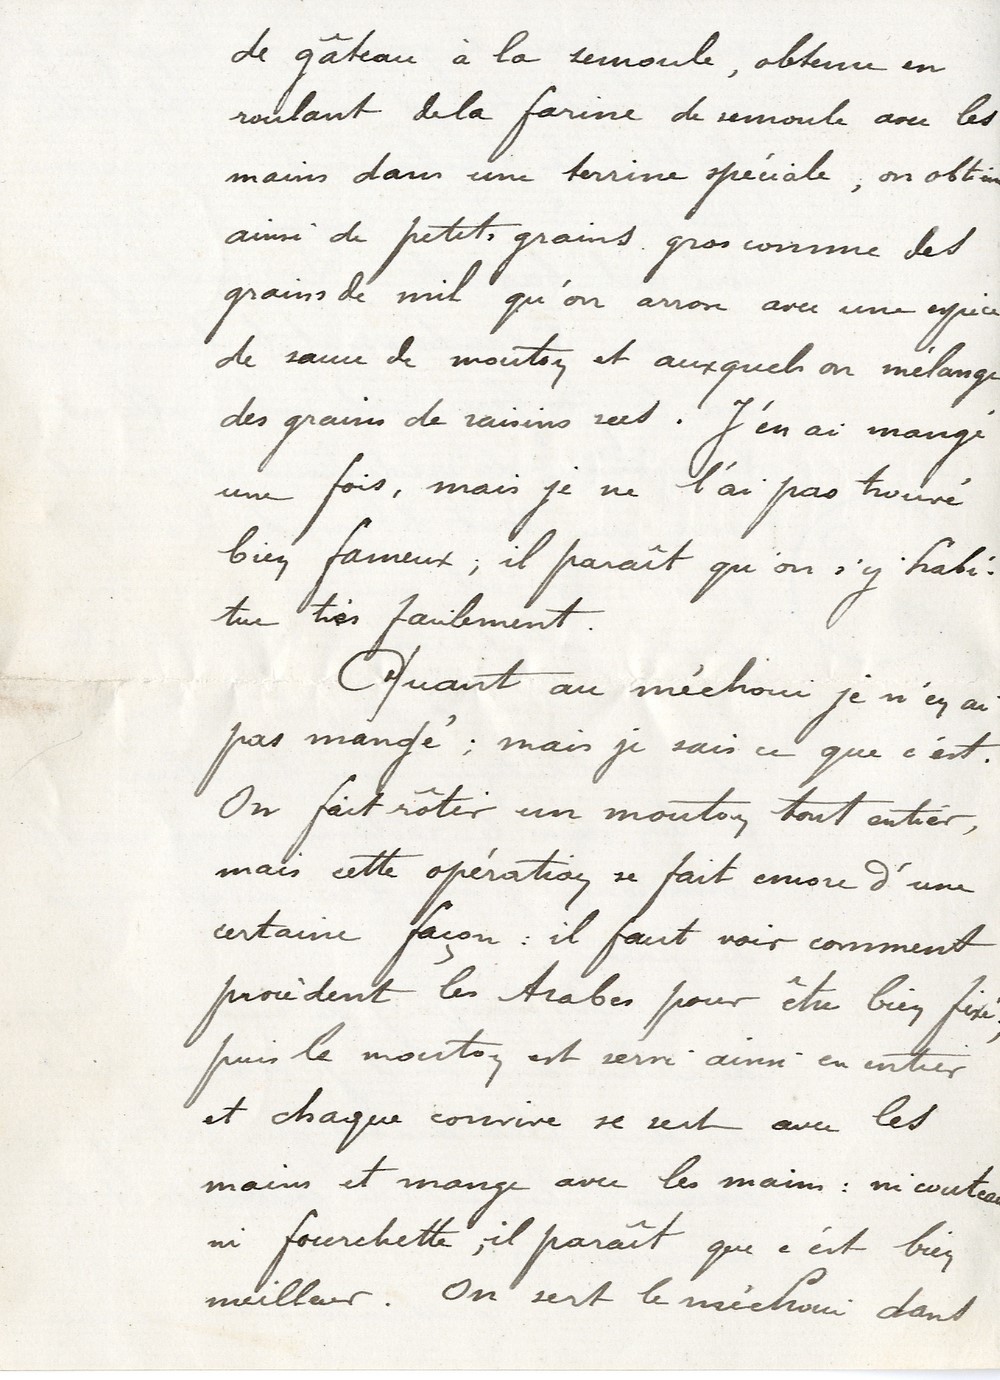 de gâteau à la semoule, obtenu en
roulant de la farine de semoule avec les
mains dans une terrine spéciale, on obtient
ainsi de petits grains gros comme des
grains de mil qu'on arrose avec une espèce
de sauce de mouton et auxquels on mélange
des grains de raisins secs. J'en ai mangé
une fois, mais je ne l'ai pas trouvé
bien fameux ; il paraît qu'on s'y habi-
tue très facilement.
Quant au méchoui je n'en ai
pas mangé ; mais je sais ce que c'est.
On fait rôtir un mouton tout entier,
mais cette opération se fait encore d'une
certaine façon : il faut voir comment
procèdent les Arabes pour être bien fixé ;
puis le mouton est servi ainsi en entier
et chaque convive se sert avec les
mains et mange avec les mains : ni couteau
ni fourchette ; il paraît que c'est bien
meilleur. On sert le méchoui dans